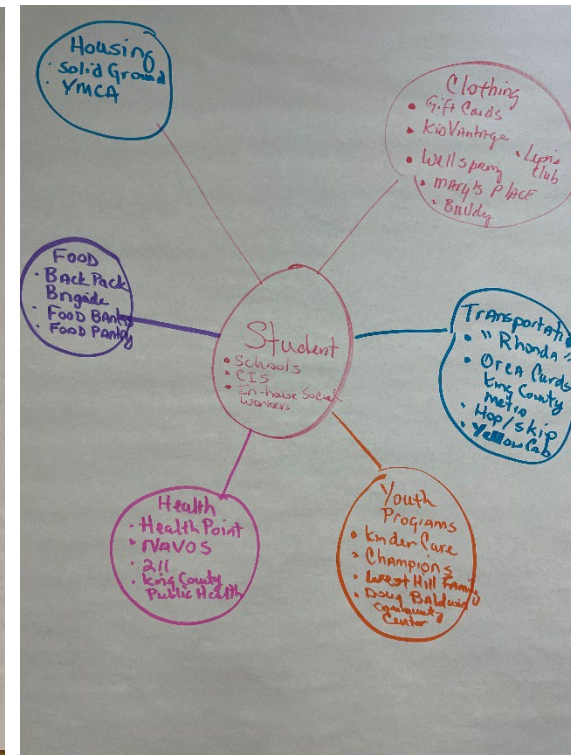 Housing
· Solid Ground
· YMCA
Clothing
• Gift Cards
• KidVantage
• Wellspring
• Mary's PLACE
• Buddy
• Club
FOOD
· Back Pack
Brigade
· FOOD BANKS
· FOOD PANTRY
Student
• Schools
• CIS
• In-house Social
Workers
Transportati
• "Rhonda"
• Orca Cards
King County
Metro
• Hop/Skip
• Yellow Cab
Health
· Health Point
• NAVOS
• 211
• King County
Public Health
Youth
Programs
• Kinder Care
• Champions
• West Hill Family
• Doug Baldwin
Community
Center